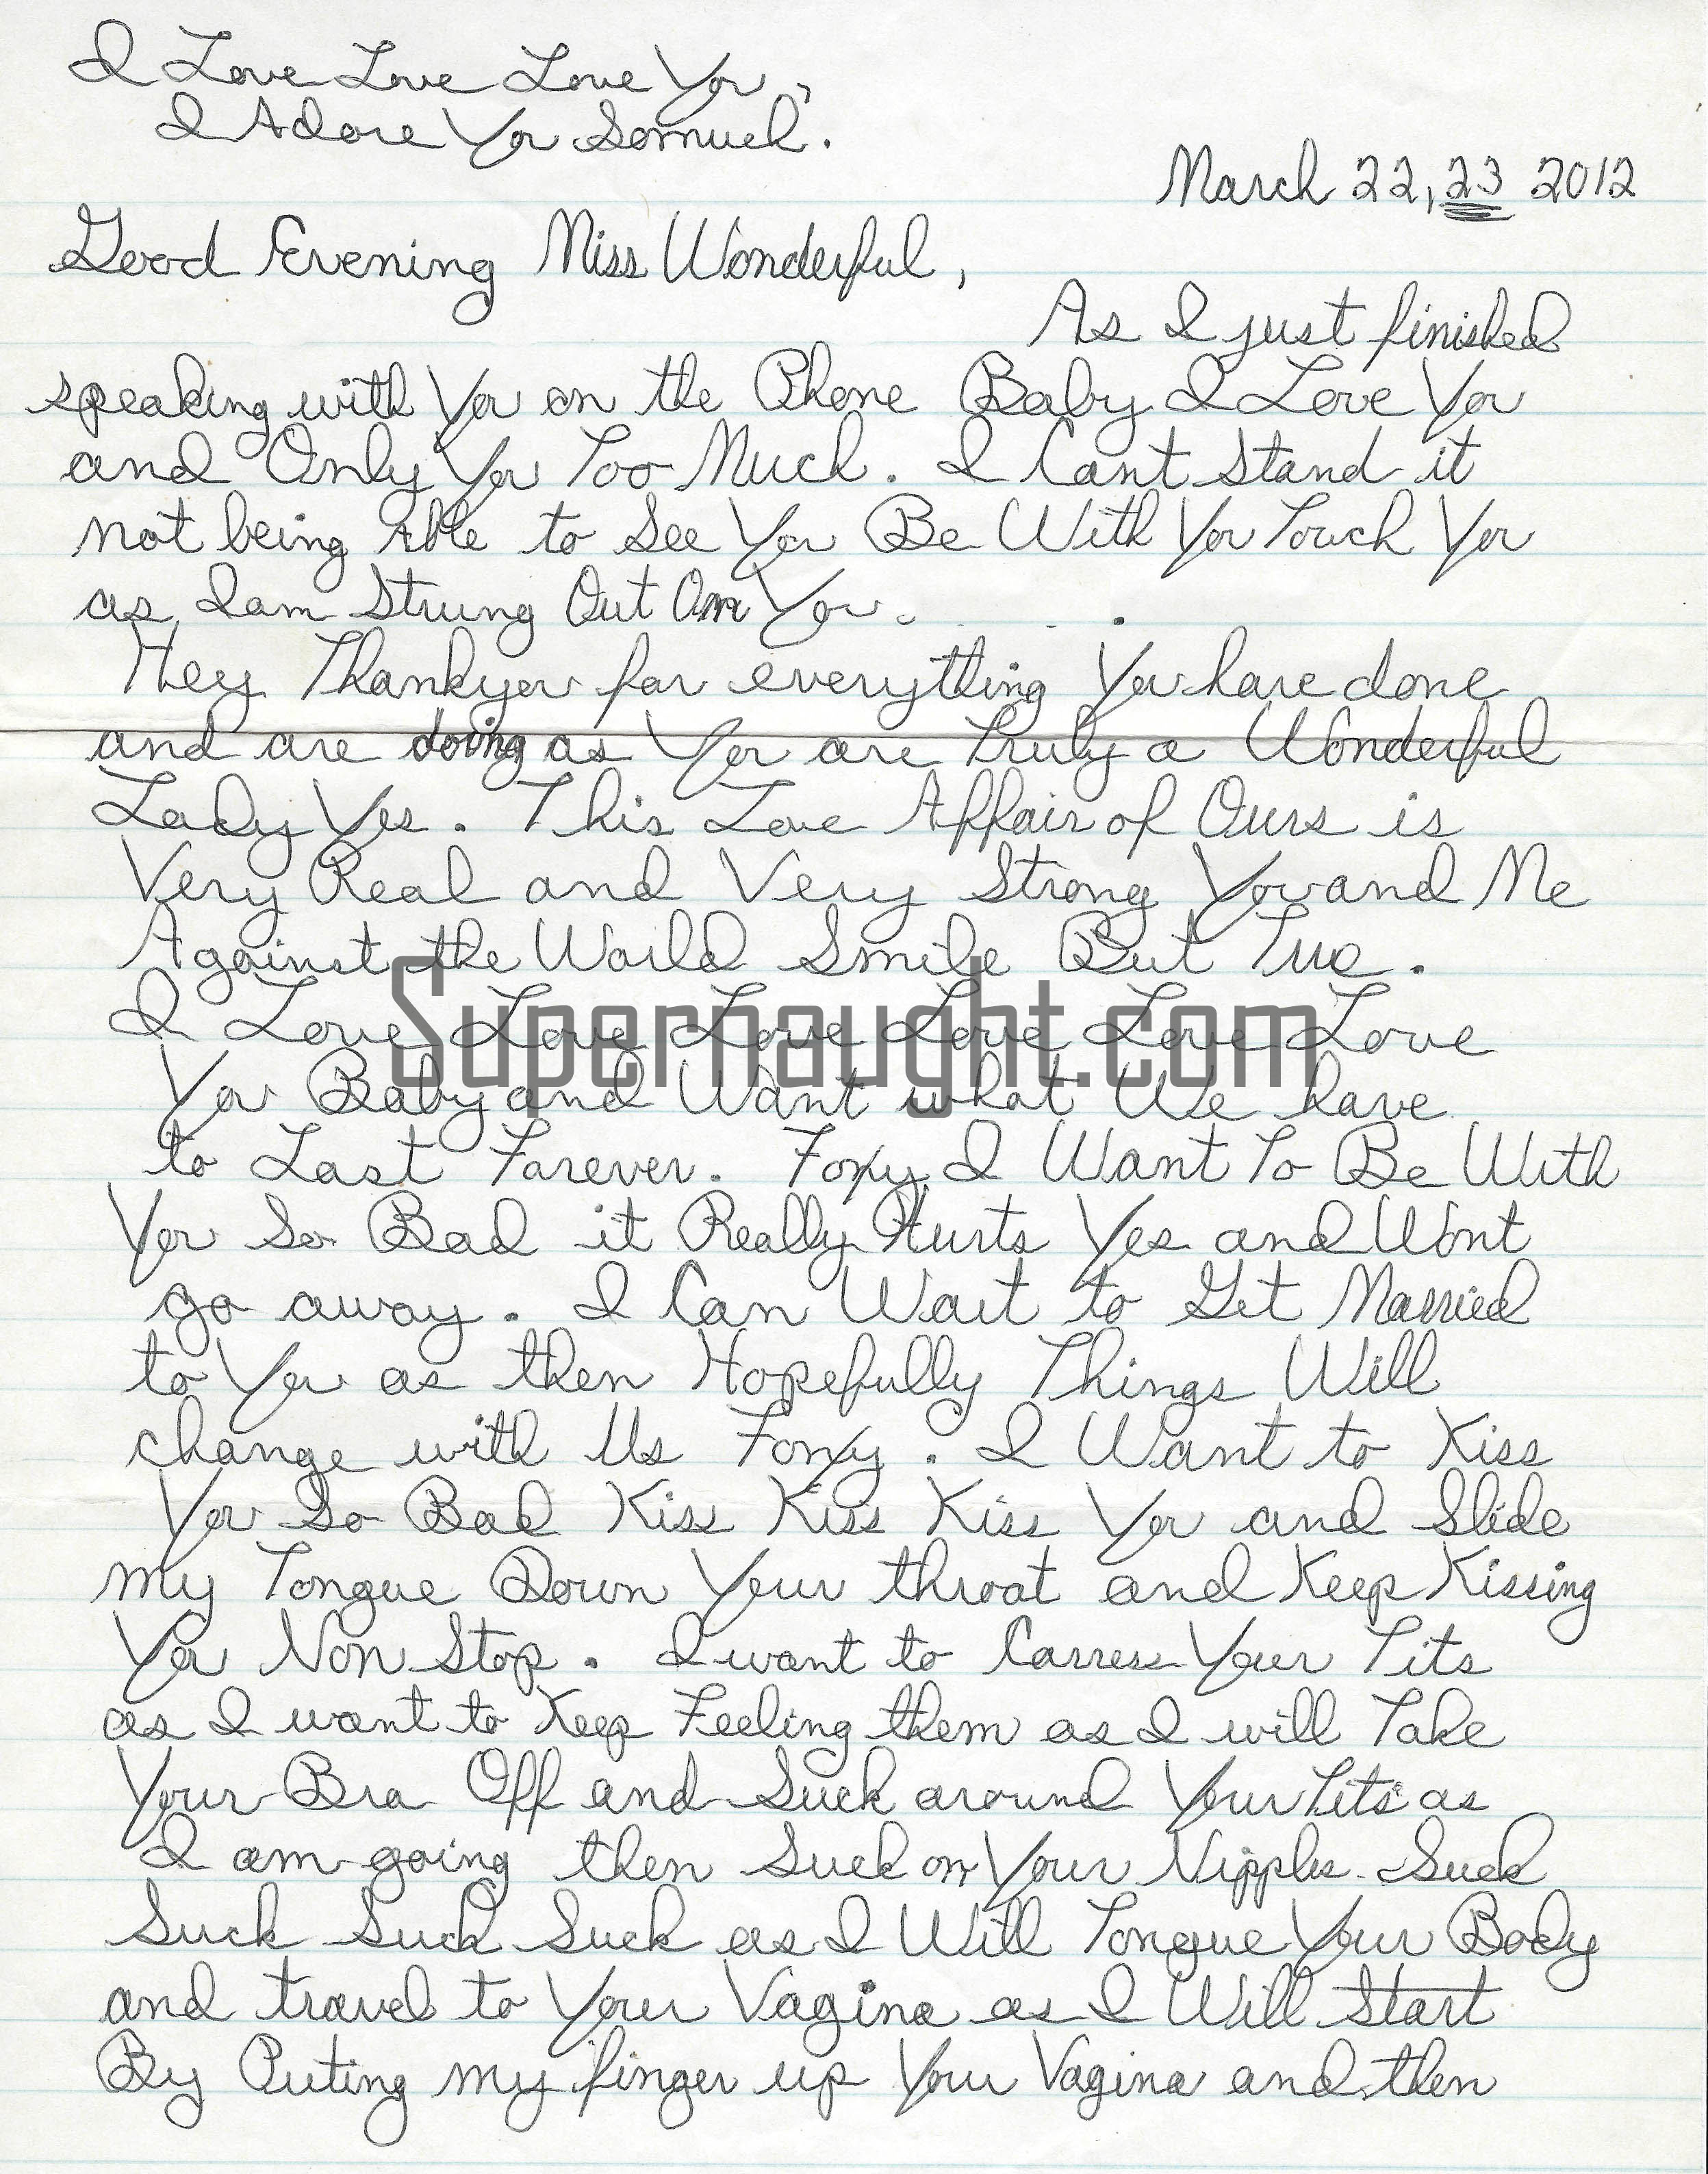 I Love Love Love You,
I Adore You Somuch.
March 22, 23 2012
Good Evening Miss Wonderful,
As I just finished
speaking with You on the Phone Baby I Love You
and Only You Too Much. I Cant Stand it
not being Able to See You Be With You Touch You
as I am Strung Out On You.
Hey Thankyou for everything You have done
and are doing as You are Truly a Wonderful
Lady Yes. This Love Affair of Ours is
Very Real and Very Strong You and Me
Against the World Smile But True.
I Love Love Love Love Love Love
Supernaught.com
You Baby and Want what We have
to Last Forever. Foxy I Want To Be With
You So Bad it Really Hurts Yes and Wont
go away. I Can Wait to Get Married
to You as then Hopefully Things Will
change with Us Foxy. I Want to Kiss
You So Bad Kiss Kiss Kiss You and Slide
my Tongue Down Your throat and Keep Kissing
You Non Stop. I want to Carress Your Tits
as I want to Keep Feeling them as I will Take
Your Bra Off and Suck around Your Tits as
I am going then Suck on Your Nipples Suck
Suck Suck Suck as I Will Tongue Your Body
and travel to Your Vagina as I Will Start
By Puting my finger up Your Vagina and then